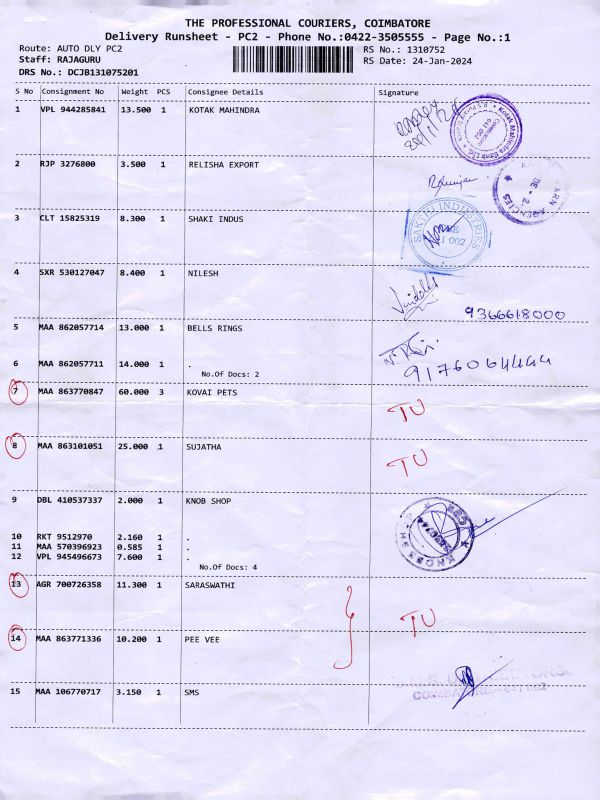 THE PROFESSIONAL COURIERS, COIMBATORE
Delivery Runsheet - PC2 - Phone No.:0422-3505555 - Page No.:1
Route: AUTO DLY PC2 RS No.: 1310752
Staff: RAJAGURU RS Date: 24-Jan-2024
DRS No.: DCJB131075201
S No Consignment No Weight PCS Consignee Details Signature
1 VPL 944285841 13.500 1 KOTAK MAHINDRA
Kotak Mahindra Bank Ltd.
2 RJP 3276800 3.500 1 RELISHA EXPORT
AGENCIES
3 CLT 15825319 8.300 1 SHAKI INDUS
SAKTHI INDUSTRIES
4 SXR 530127047 8.400 1 NILESH
9366618000
5 MAA 862057714 13.000 1 BELLS RINGS
6 MAA 862057711 14.000 1 .
No.Of Docs: 2
9176064444
7 MAA 863770847 60.000 3 KOVAI PETS
TU
8 MAA 863101051 25.000 1 SUJATHA
TU
9 DBL 410537337 2.000 1 KNOB SHOP
10 RKT 9512970 2.160 1 .
11 MAA 570396923 0.585 1 .
12 VPL 945496673 7.600 1 .
No.Of Docs: 4
13 AGR 700726358 11.300 1 SARASWATHI
TU
14 MAA 863771336 10.200 1 PEE VEE
15 MAA 106770717 3.150 1 SMS